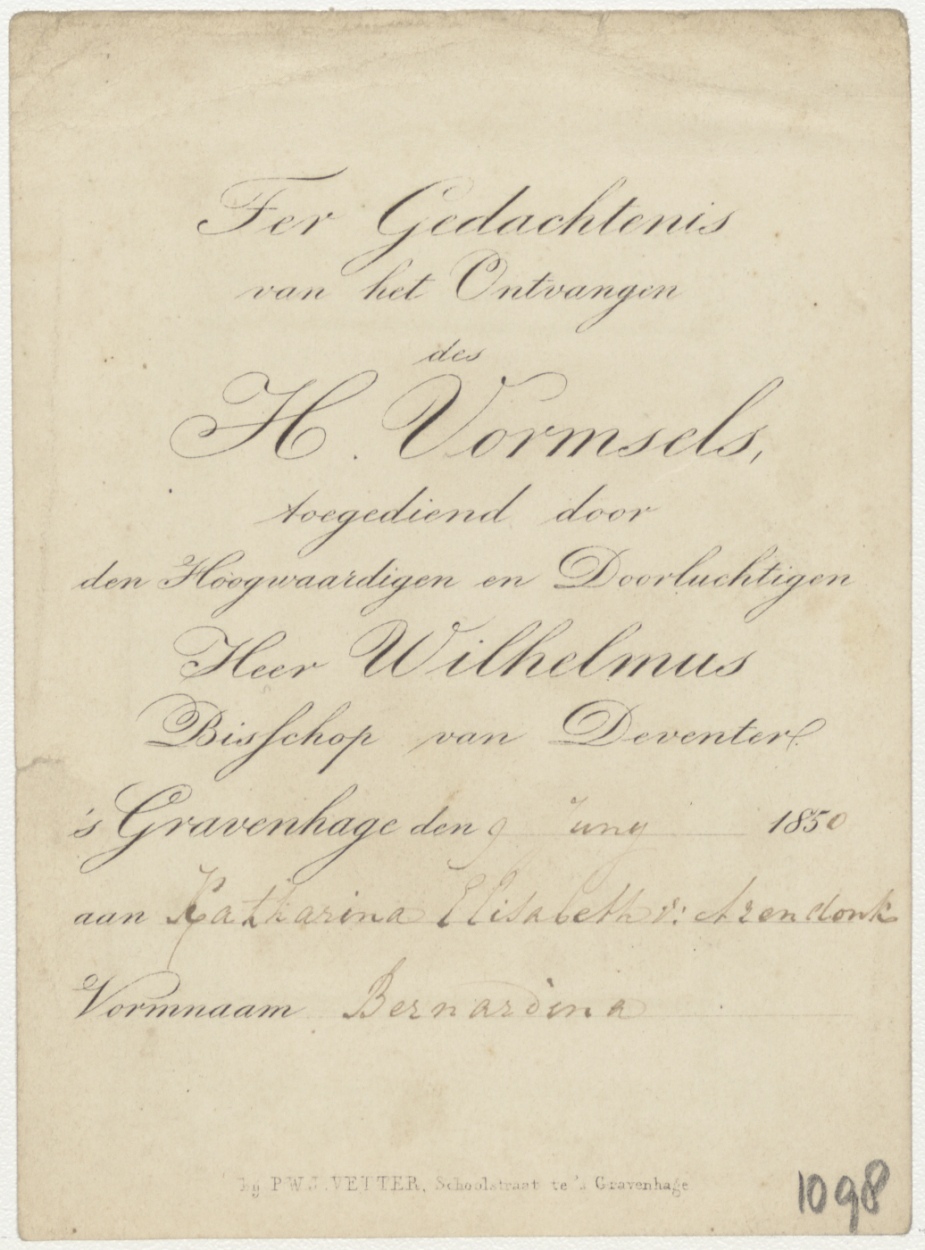 Ter Gedachtenis
van het Ontvangen
des
H. Vormsels,
toegediend door
den Hoogwaardigen en Doorluchtigen
Heer Wilhelmus
Bisschop van Deventer.
's Gravenhage den 9 Juny 1850
aan Katharina Elisabeth v: Arendonk
Vormnaam Bernardina
by P.W.J. VETTER, Schoolstraat te 's Gravenhage
1098